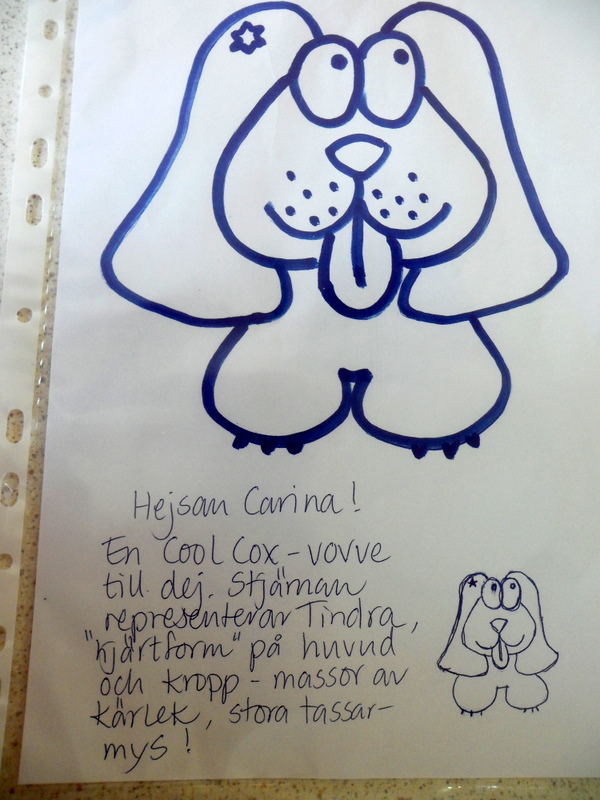 Hejsan Carina!
En Cool Cox - vovve
till dej. Stjärnan
representerar Tindra,
"hjärtform" på huvud
och kropp - massor av
kärlek, stora tassar-
mys!